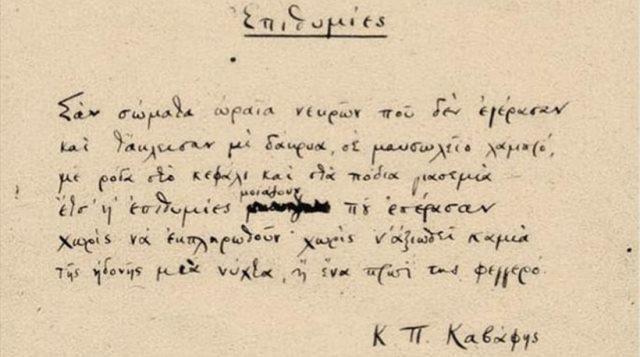 Ἐπιθυμίες
Σὰν σώματα ὡραῖα νεκρῶν ποῦ δὲν ἐγέρασαν
καὶ τἄκλεισαν μὲ δάκρυα, σὲ μαυσωλεῖο λαμπρό,
μὲ ρόδα στὸ κεφάλι καὶ στὰ πόδια γιασεμιὰ —
ἔτσ' ἡ ἐπιθυμίες μοιάζουν ποῦ ἐπέρασαν
χωρὶς νὰ ἐκπληρωθοῦν· χωρὶς ν' ἀξιωθεῖ καμιὰ
τῆς ἡδονῆς μιὰ νύχτα, ἢ ἕνα πρωῒ της φεγγερό.
Κ. Π. Καβάφης